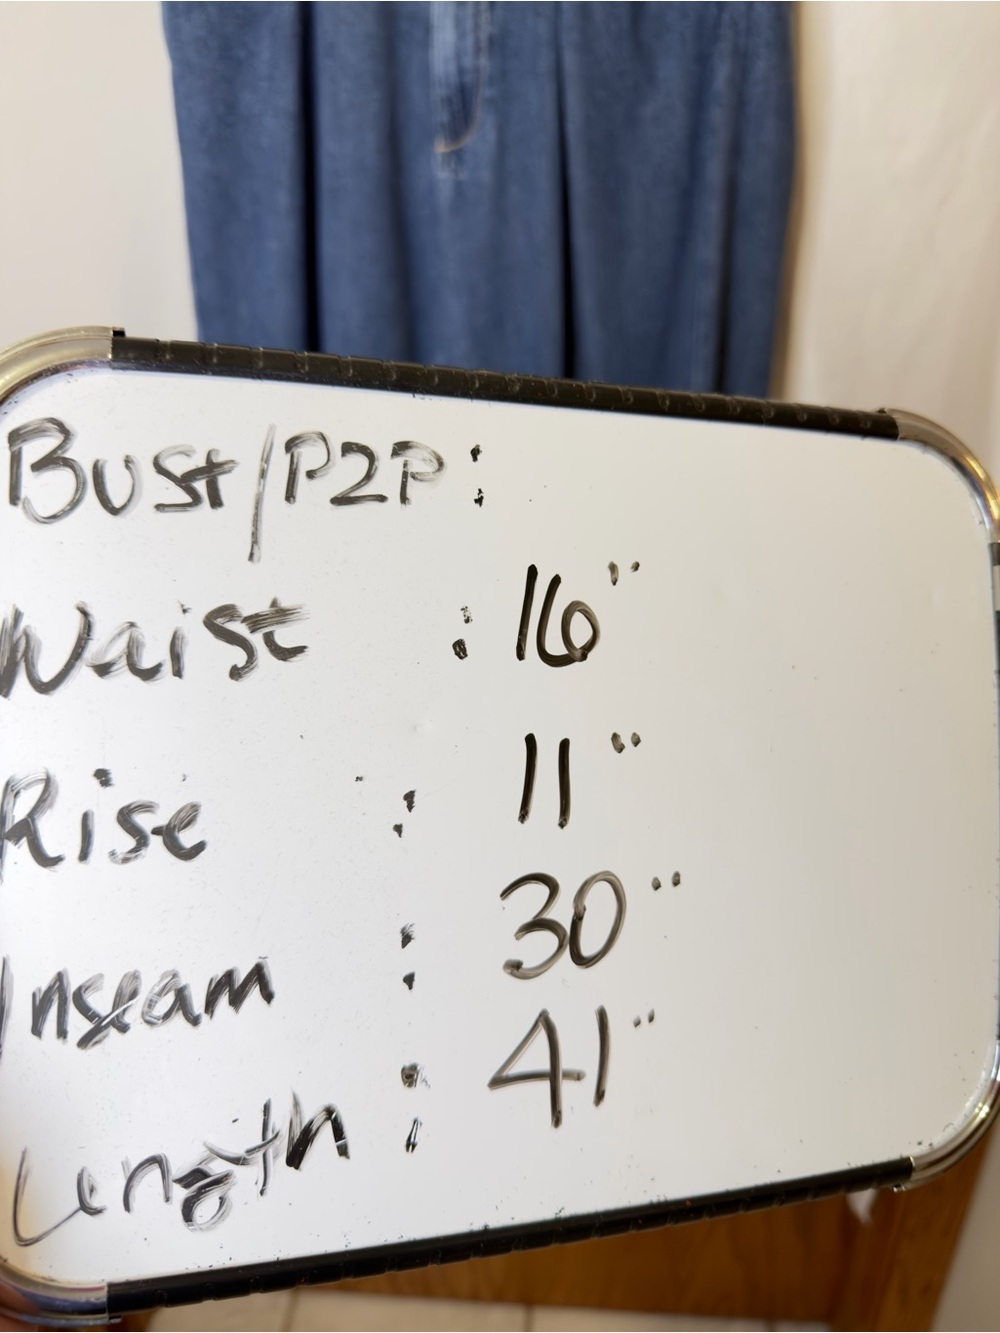 Bust/P2P :
Waist : 16"
Rise : 11"
Inseam : 30"
Length : 41"